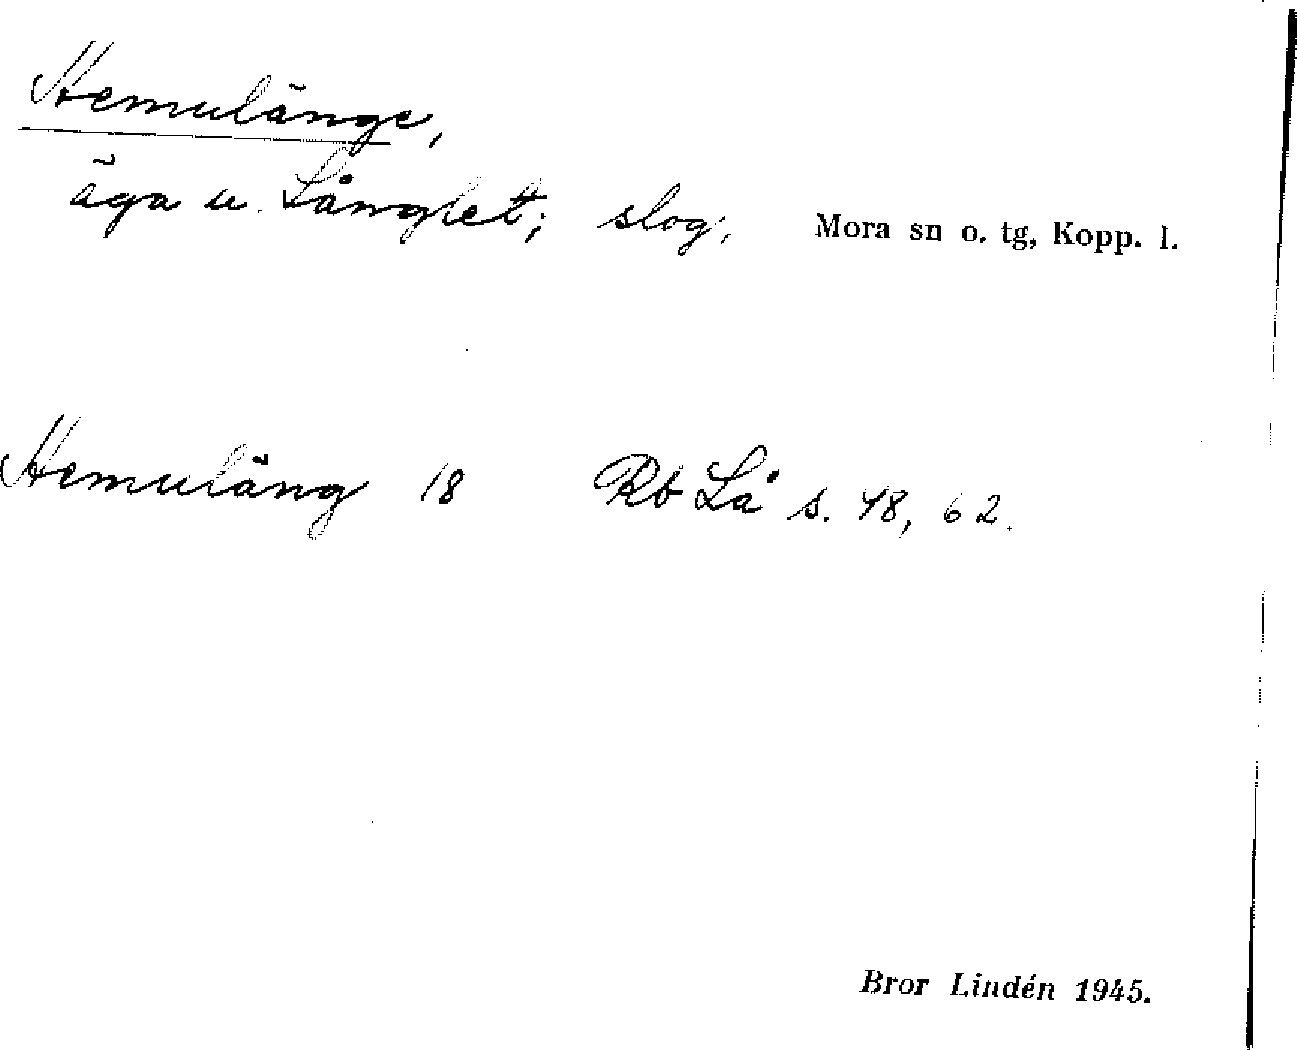 Hemulänge,
äga u. Långlet; slog, Mora sn o. tg, Kopp. l.
Hemuläng 18 Rb Lå s. 48, 62.
Bror Lindén 1945.